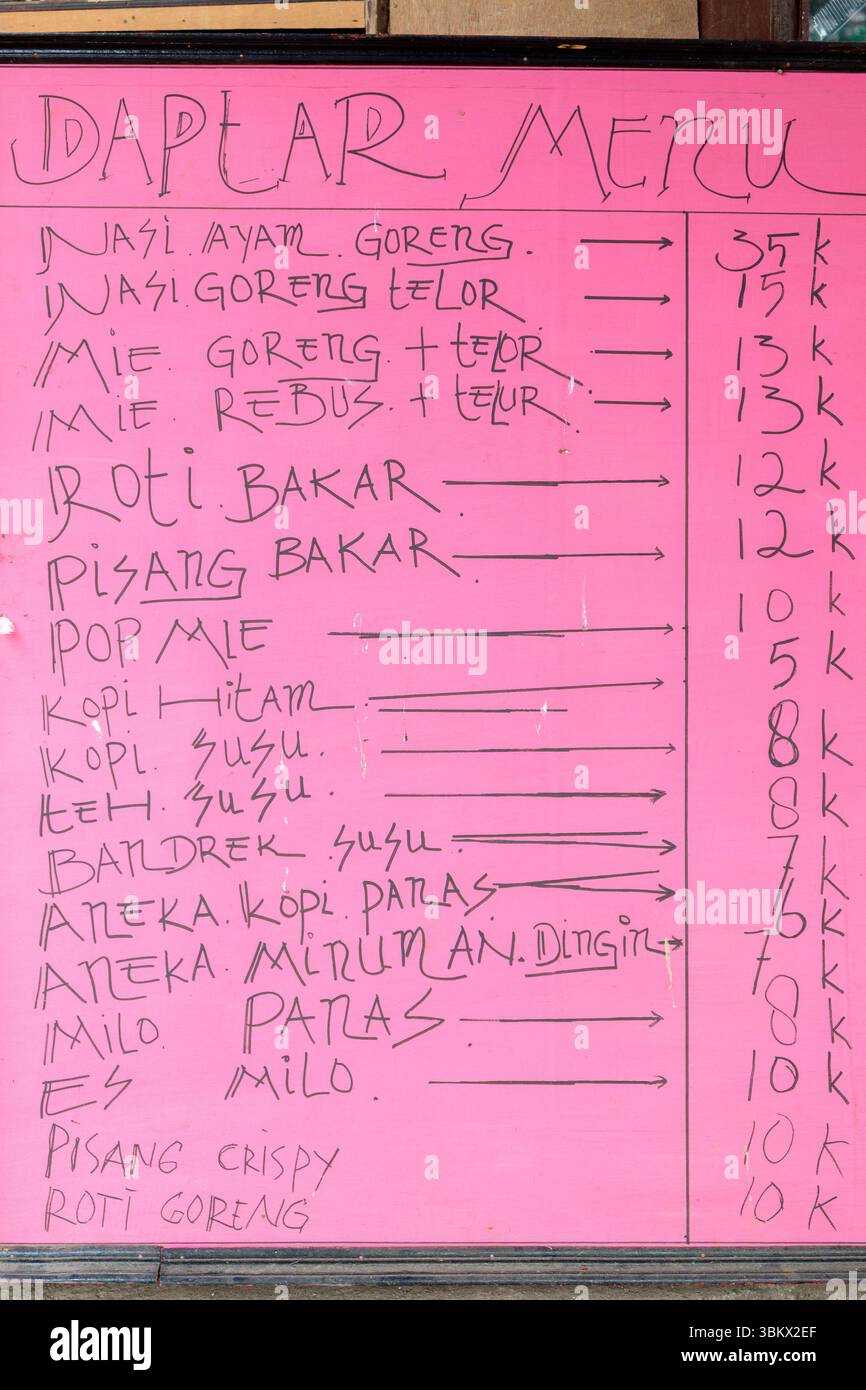 DAPtAR MENU
NASi. AYAM. GORENG. → 35 k
NASi. GORENG tELOR → 15 k
MiE. GORENG. + tELOR → 13 k
MiE. REBUS. + tELUR. → 13 k
ROti. BAKAR → 12 k
PiSANG BAKAR → 12 k
POP MIE → 10 k
KOPi HitAM. → 5 k
KOPi. SUSU. → 8 k
tEH. SUSU. → 8 k
BANDREK SUSU. → 7 k
ANEKA. KOPi. PANAS → 6 k
ANEKA. MiNUMAN. DiNGiN → 7 k
MiLO PANAS → 8 k
ES MiLO. → 10 k
PiSANG CRiSPY 10 K
ROTi GORENG 10 K
alamy
Image ID: 3BKX2EF
www.alamy.com